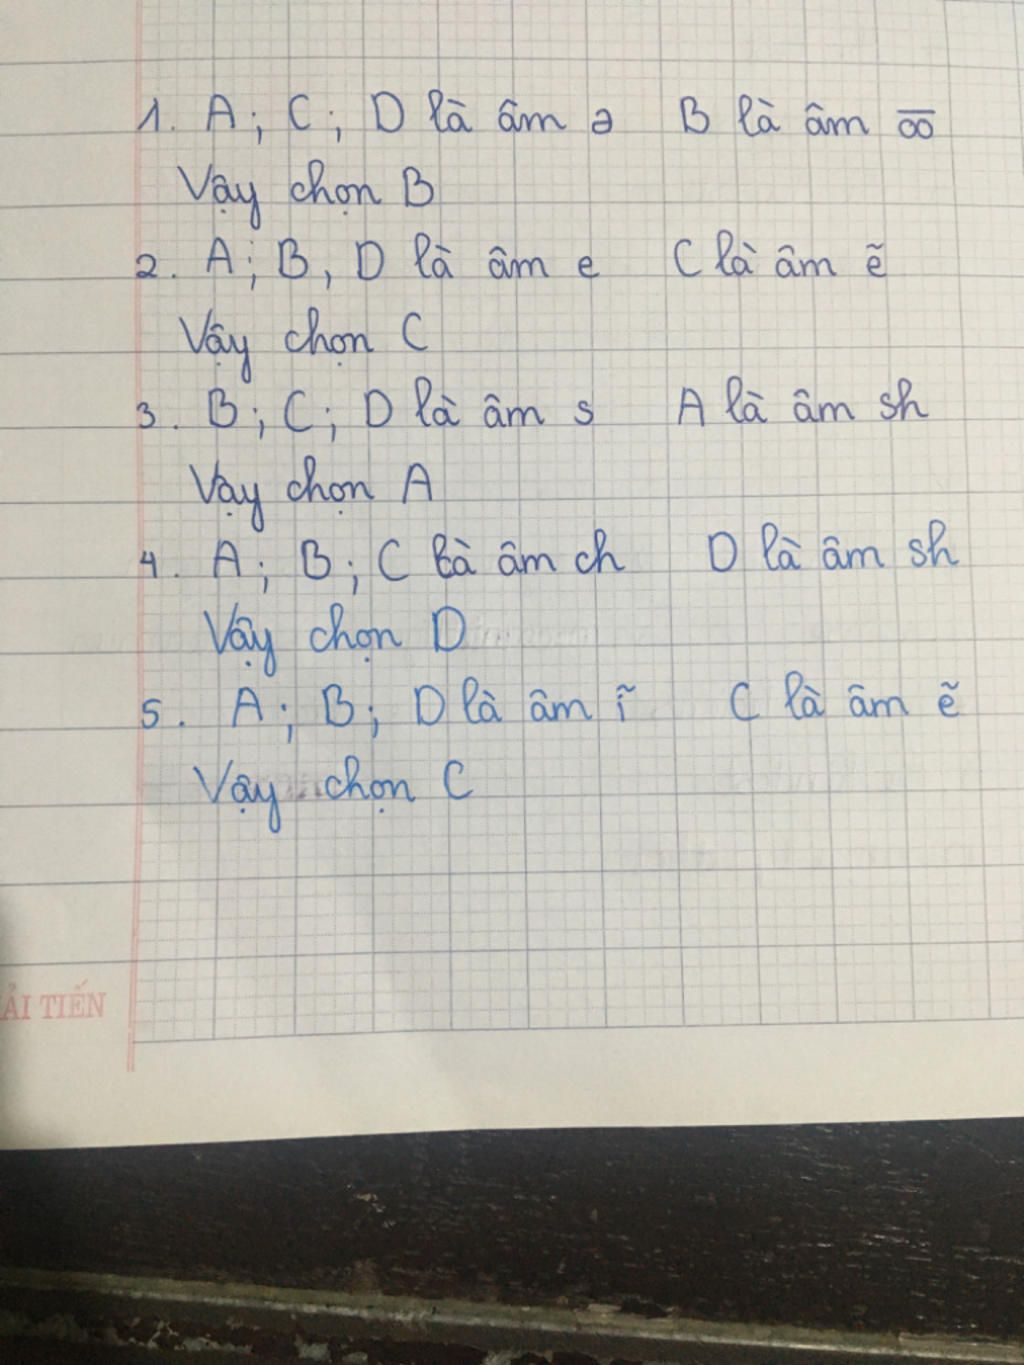 1. A; C; D là âm ə B là âm o͞o
Vậy chọn B
2. A; B, D là âm e C là âm ẽ
Vậy chọn C
3. B; C; D là âm s A là âm sh
Vậy chọn A
4. A; B; C là âm ch D là âm sh
Vậy chọn D
5. A; B; D là âm ĩ C là âm ẽ
Vậy chọn C
ẢI TIẾN